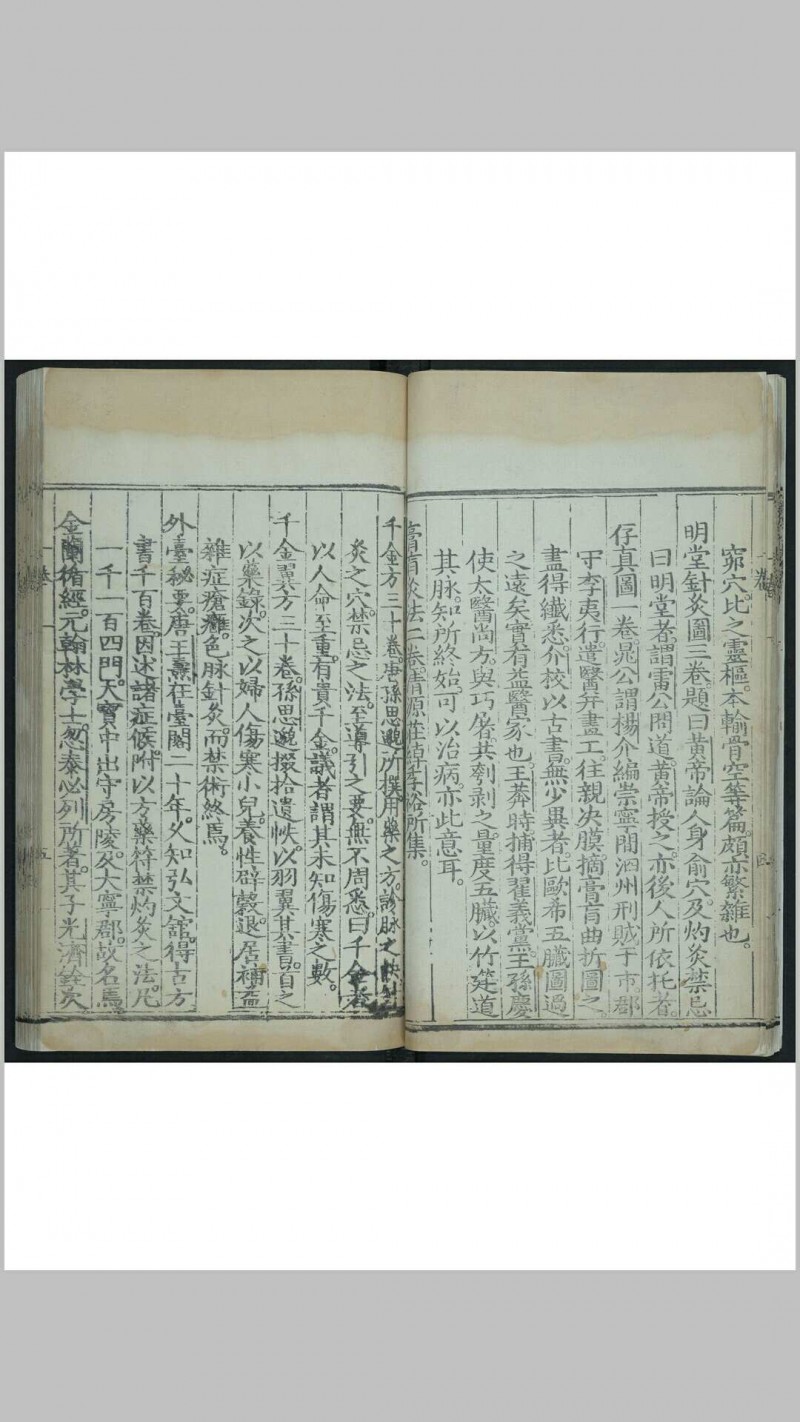 窌穴。比之靈樞。本輸骨空等篇。頗亦繁雜也。
明堂針灸圖三卷。題曰黃帝論人身俞穴。及灼灸禁忌
曰明堂者。謂雷公問道。黃帝授之。亦後人所依托者。
存真圖一卷。晁公謂楊介編。崇寧間泗州刑賊于市。郡
守李夷行。遣醫并畫工。往親决膜。摘膏肓。曲折圖之。
盡得纖悉。介校以古書。無少異者。比歐希五臟圖過
之遠矣。實有益醫家也。王莽時捕得翟義黨王孫慶
使太醫尚方。與巧屠。共刳剥之。量度五臟。以竹筳道
其脉。知所終始。可以治病。亦此意耳。
膏肓灸法二卷。清源莊綽季裕所集。
千金方三十卷。唐孫思邈所撰。用藥之方。診脉之訣。針
灸之穴。禁忌之法。至導引之要。無不周悉。曰千金者
以人命至重。有貴千金。議者謂其未知傷寒之數。
千金翼方三十卷。孫思邈掇拾遺帙。以羽翼其書。首之
以藥錄。次之以婦人傷寒小兒。養性辟穀。退居補益
雜症瘡癰。色脉針灸。而禁術終焉。
外臺秘要。唐王燾在臺閣二十年。久知弘文館。得古方
書千百卷。因述諸症候。附以方藥符禁灼灸之法。凡
一千一百四門。天寶中出守房陵。及大寧郡。故名焉
金蘭循經。元翰林學士。忽泰必列所著。其子光濟銓次